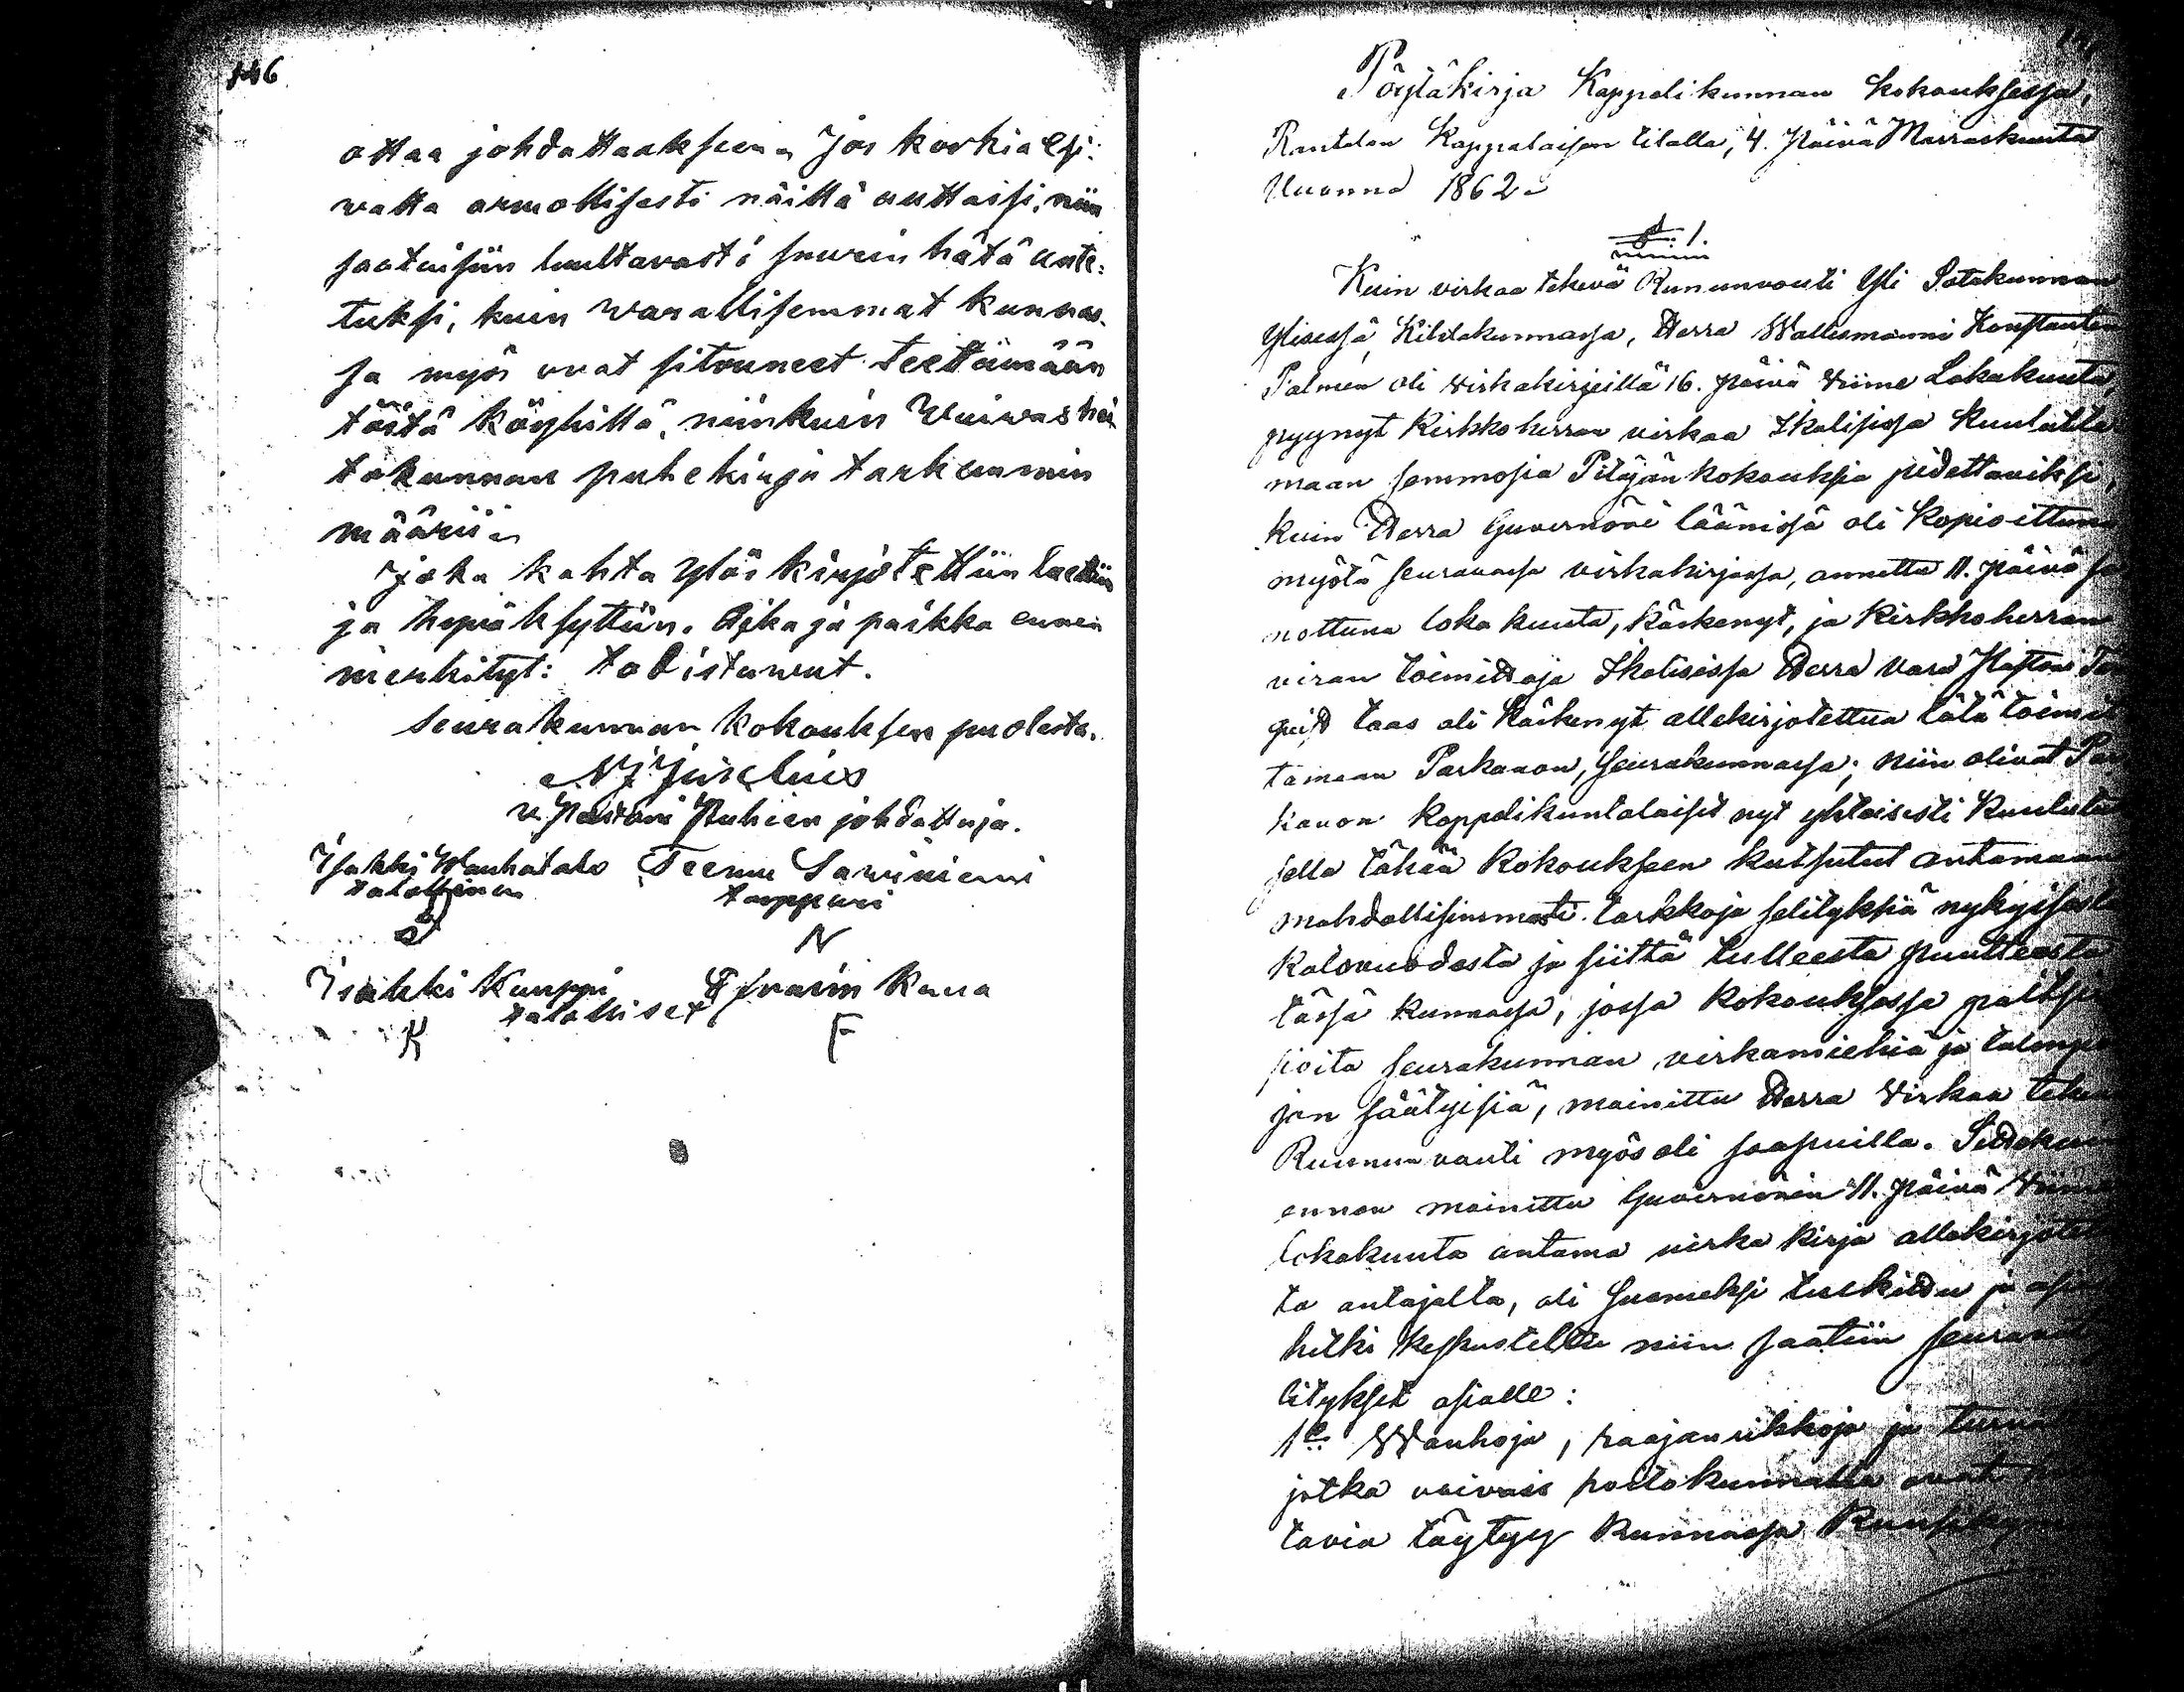 146
ottaa johdattaaksensa Jos korkia Esi:
watta armollisesti näittä auttaissi, niin
saataisiin luultavasti suurin hätä aute:
tuksi, kuin warallisemmat kunnas-
sa myös ovat sitouneet teettämään
töitä köyhillä, niinkuin Waiwas hoi
tokunnan puhekirja tarkemmin
määrii
joka kohta ylös kirjotettiin luettiin
ja hyväksyttiin. Aika ja paikka ennen
merkityt: todistawat.
Seurakunnan kokouksen puolesta.
v. Pastori Puhien johdattaja.
Isakki Wanhatalo Teemu Sawiniemi
talollinen torppari
N
Isakki Kuuppi Efraim Kana
talolliset
K F
Pöytäkirja Kappelikunnan kokouksessa,
Rantalan Kappalaisen tilalla, 4. päivä Marraskuuta
Vuonna 1862
§. 1.
Kuin virkaa tekevä Ruununvouti Yli Satakunnan
Ylisessä Kihlakunnassa, Herra Wallesmanni Konstantin
Palmen oli virkakirjeillä 16. päivä viime Lokakuuta,
pyynyt Kirkkoherran virkaa Ikalisissa Kuulutta
maan semmosia Pitäjän kokouksia pidettäviksi,
kuin Herra Guvernööri läänissä oli kopioittuna
myötä seuraavassa virkakirjassa, annettu 11. päivä sa
nottuna loka kuuta, käskenyt, ja Kirkkoherran
viran toimittaja Ikalisissa Herra vara Pastor
taas oli käskenyt allekirjotettua tätä toimit
tamaan Parkanon, seurakunnassa; niin olivat Par
kanon kappelikuntalaiset nyt yhteisesti Kuuluta
sella tähän Kokoukseen kutsutut antamaan
mahdollisimmasti tarkkoja selityksiä nykyisestä
katovuodesta ja siittä tulleesta puutteesta
tässä kunnassa, jossa kokouksessa paitsi
sioita seurakunnan virkamiehiä ja talonpo
jan säätyisiä, mainittu Herra virkaa teke
Ruunun vouti myös oli saapuilla. Sittekui
ennen mainittu Guvernörin 11. päivä viime
lokakuuta antama virka kirja allekirjotet
ta antajalta, oli Suomeksi tulkittu ja asia
hetki keskusteltu niin saatiin seuraavat
litykset asialle:
1o Wanhoja, raajanrikkoja ja
jotka vaivais hoitokunnalta ovat
tavia täytyy kunnassa